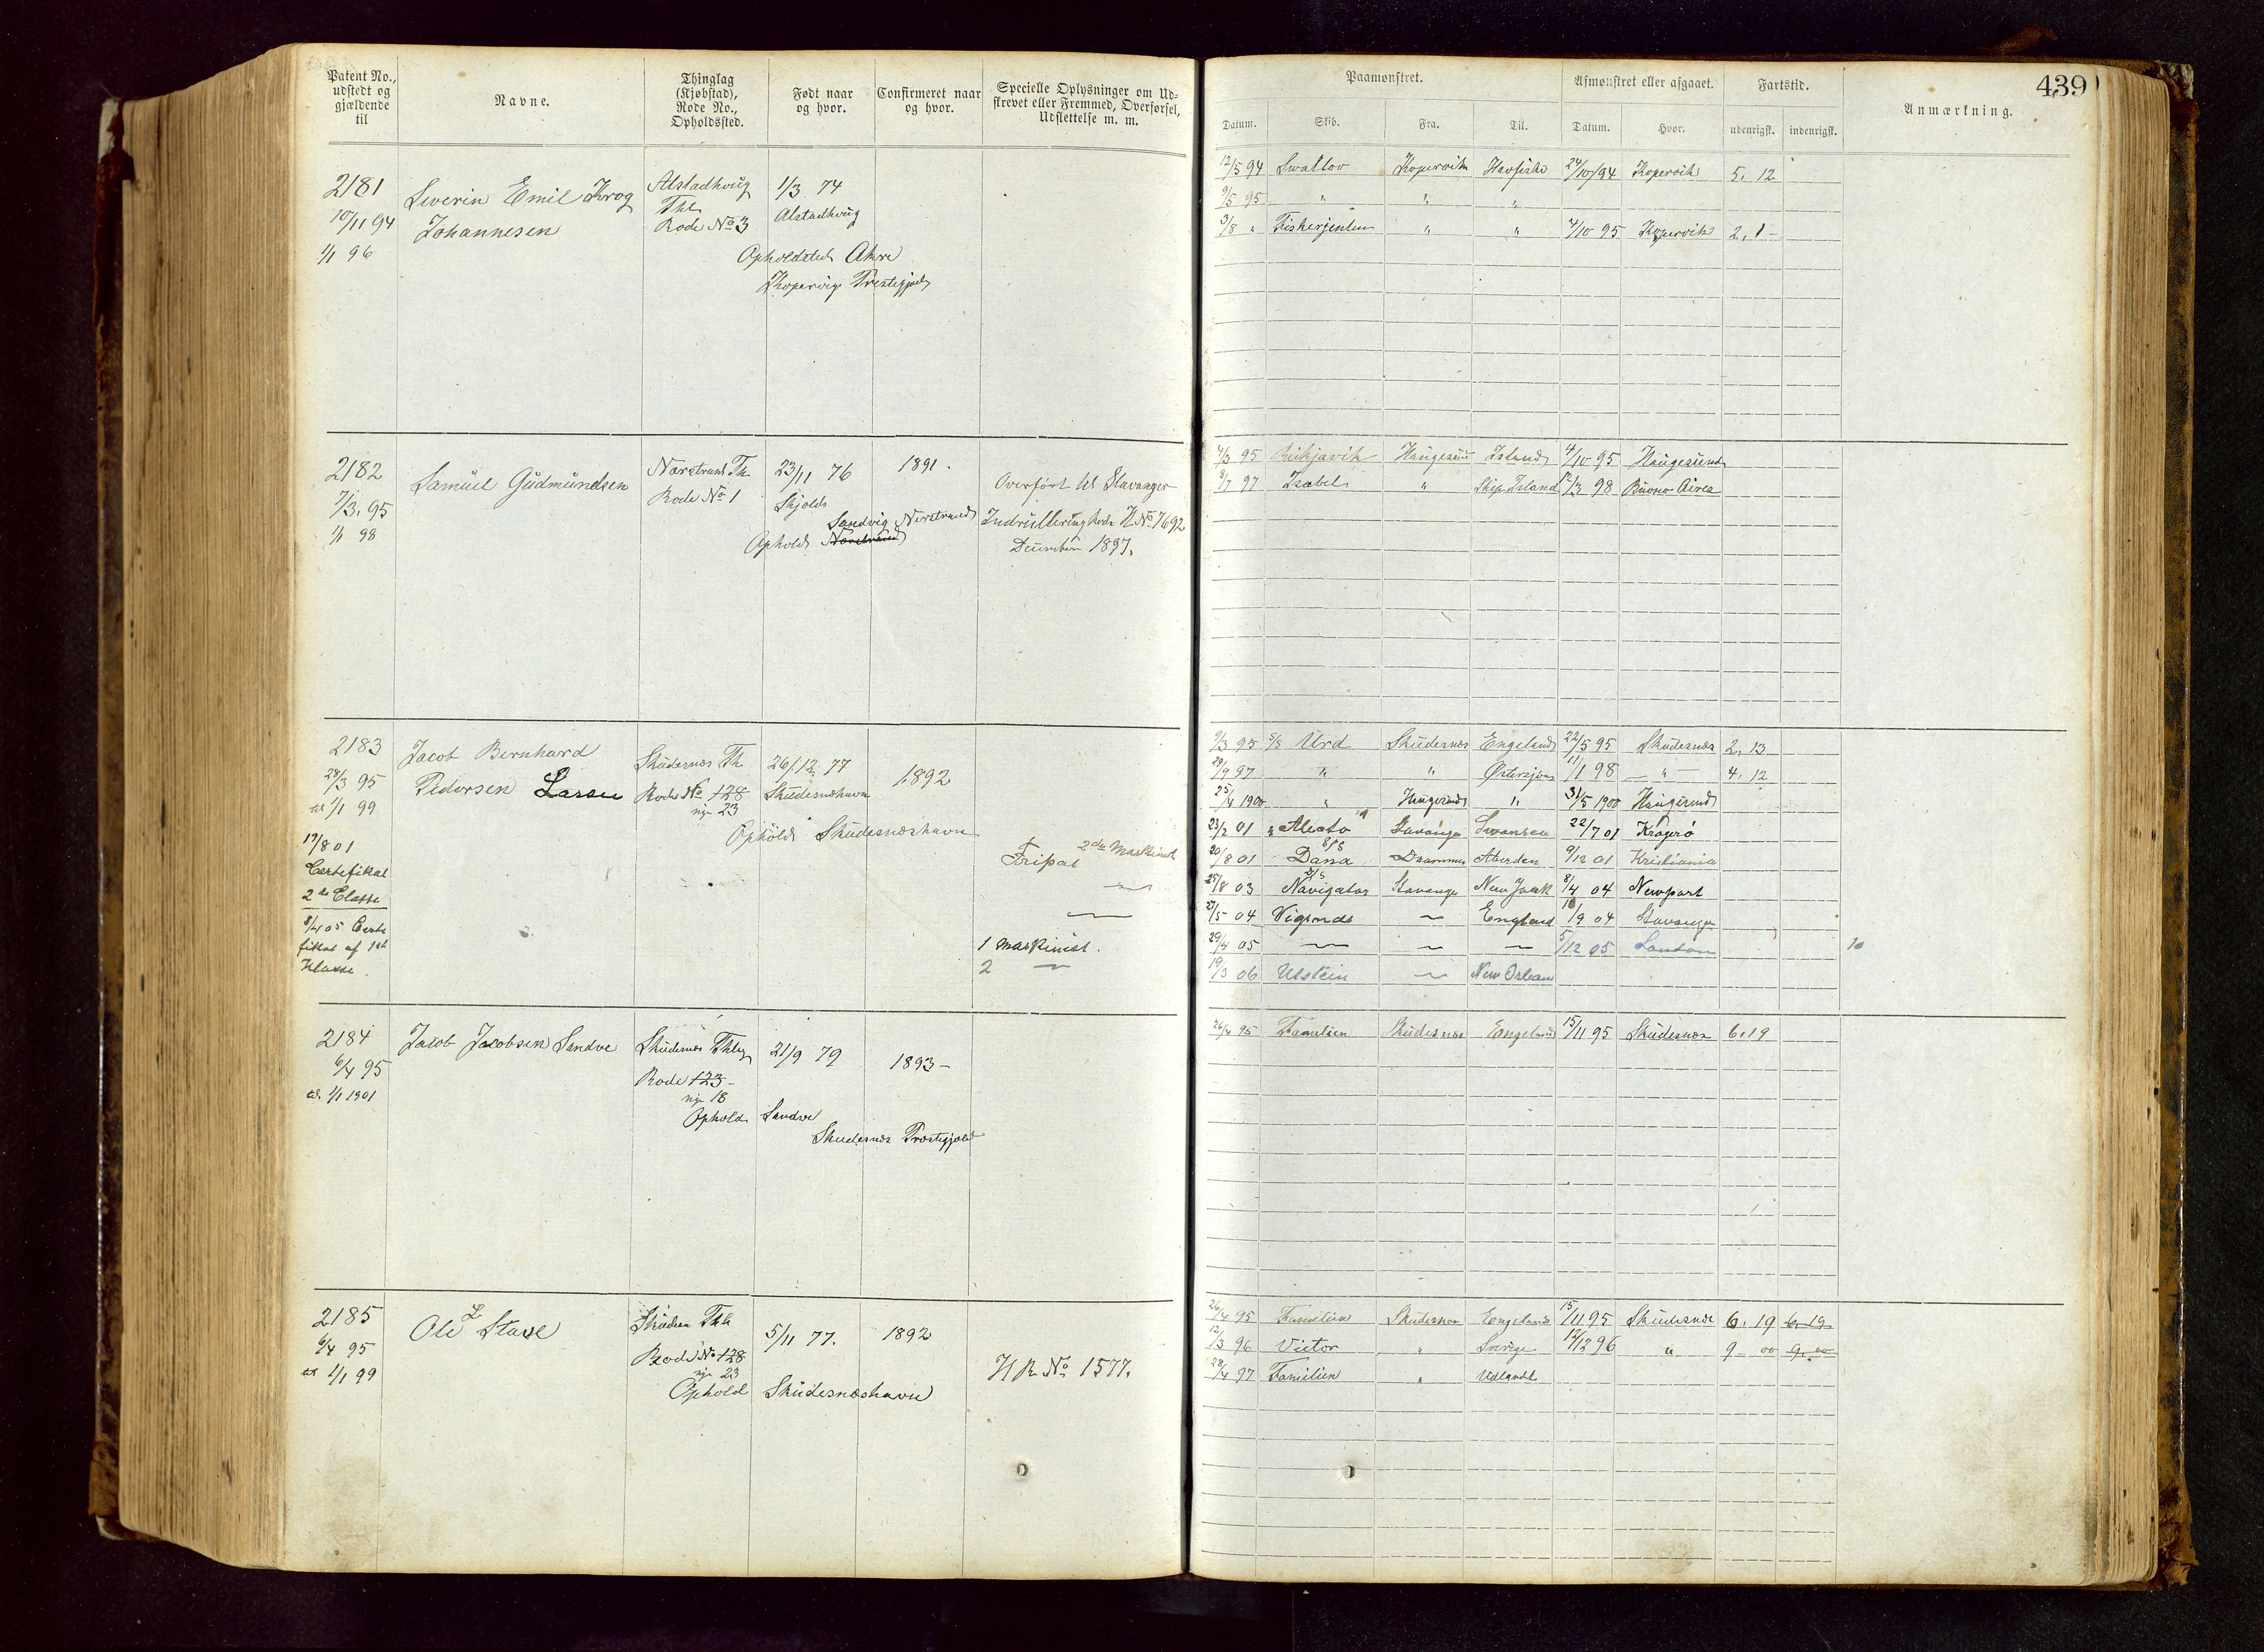 Patent No., udstedt og gjældende til
Navne.
Thinglag (Kjøbstad), Rode No., Opholdssted.
Født naar og hvor.
Confirmeret naar og hvor.
Specielle Oplysninger om Udskrevet eller Fremmed, Overførsel, Udslettelse m. m.
Paamønstret.
Afmønstret eller afgaaet.
Fartstid.
Anmærkning.
439
Datum. Skib. Fra. Til. Datum. Hvor. udenrigsk. indenrigsk.
2181
10/11 94
1/1 96
Severin Emil Krog
Johannesen
Alstadhoug
Thl
Rode No 3
1/3 74
Alstadhoug
Opholdsted Akre
Kopervig Prestegjeld
12/5 94 Swallow Kopervik Havfiske 24/10 94 Kopervik 5. 12
9/5 95 " " "
3/8 " Fiskerjenten " " 4/10 95 Kopervik 2. 1
2182
7/3. 95
1/1 98
Samuel Gudmundsen
Nærstrand Th
Rode No 1
23/11 76
Skjold
1891.
Sandvig Nærstrand
Ophold Nærstrand
Overført til Stavanger
Indrulleringsrode H No 7692
December 1897.
4/3 95 Reikjavik Haugesund Island 4/10 95 Haugesund
8/7 97 Isabel " Ship Island 12/3 98 Buono Aires
2183
28/3 95
til 1/1 99
17/8 01
Certefikat
2den Classe
8/4 05 Certe
fikat af 1st
Klasse.
Jacob Bernhard
Pedersen Larsen
Skudesnæs Th
Rode No 128
ny 23
26/12 77
Skudesnæshavn
1892
Ophold Skudesnæshavn
Fripas 2den Maskinist
1 Maskinist.
2 —
9/3 95 S/S Urd Skudesnæs Engeland 22/5 95 Skudesnæs 2. 13
29/9 97 " " Østersjøen 11/1 98 — " — 4. 12
25/4 1900 " Haugesund " 31/5 1900 Haugesund
23/2 01 " Alecto Stavanger Swansea 22/7 01 Kragerø
20/8 01 S/S Dana Drammen Aberdeen 9/12 01 Kristiania
25/8 03 S/S Navigator Stavanger New York 8/4 04 Newport
27/5 04 Vigsnes — England 10/9 04 Stavanger
29/4 05 — — — 5/12 05 London
19/3 06 Utstein — New Orleans
2184
6/4 95
til 1/1 1901
Jacob Jacobsen Sandve
Skudesnæs Thlg
Rode 123
ny 18
21/9 79
1893 –
Ophold Sandve
Skudesnæs Præstegjeld
26/4 95 Familien Skudesnæs Engeland 15/11 95 Skudesnæs 6. 19
2185
6/4 95
til 1/1 99
Ole L Stave
Skudesn Thl
Rode No 128
ny 23
5/11 77.
1892
Ophold Skudesnæshavn
H R No 1577.
26/4 95 Familien Skudesnæs Engeland 15/11 95 Skudesnæs 6. 19 6. 19
12/3 96 Victor " Sverige 12/12 96 " 9 00 9. 00
28/4 97 Familien " Udlandet